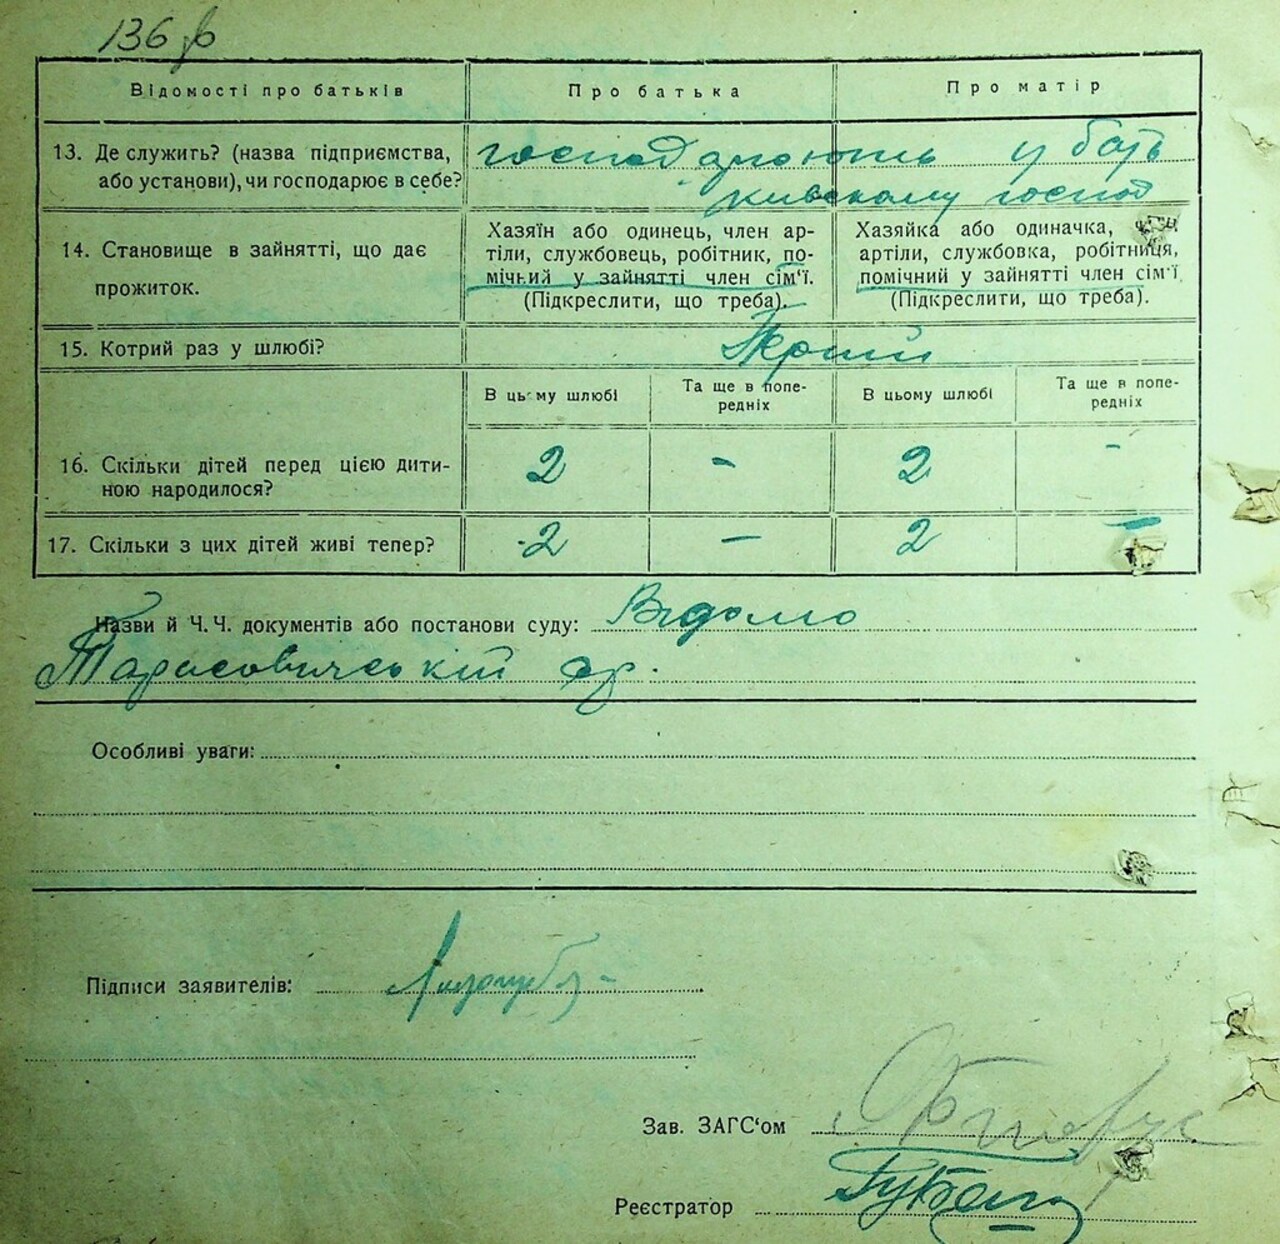 136 зв
Відомості про батьків
Про батька
Про матір
13. Де служить? (назва підприємства, або установи), чи господарює в себе?
господарюють у бать
кивському господ
14. Становище в зайнятті, що дає
прожиток.
Хазяїн або одинець, член ар-
тілі, службовець, робітник, по-
мічний у зайнятті член сім'ї.
(Підкреслити, що треба).
Хазяйка або одиначка,
артілі, службовка, робітниця,
помічний у зайнятті член сім'ї
(Підкреслити, що треба).
15. Котрий раз у шлюбі?
Перший
В цьому шлюбі
Та ще в попе-
редніх
В цьому шлюбі
Та ще в попе-
редніх
16. Скільки дітей перед цією дити-
ною народилося?
2 - 2 -
17. Скільки з цих дітей живі тепер?
2 - 2 -
Назви й Ч.Ч. документів або постанови суду: Відомо
Тарасовичській ср.
Особливі уваги:
Підписи заявителів:
Зав. ЗАГС'ом
Реєстратор